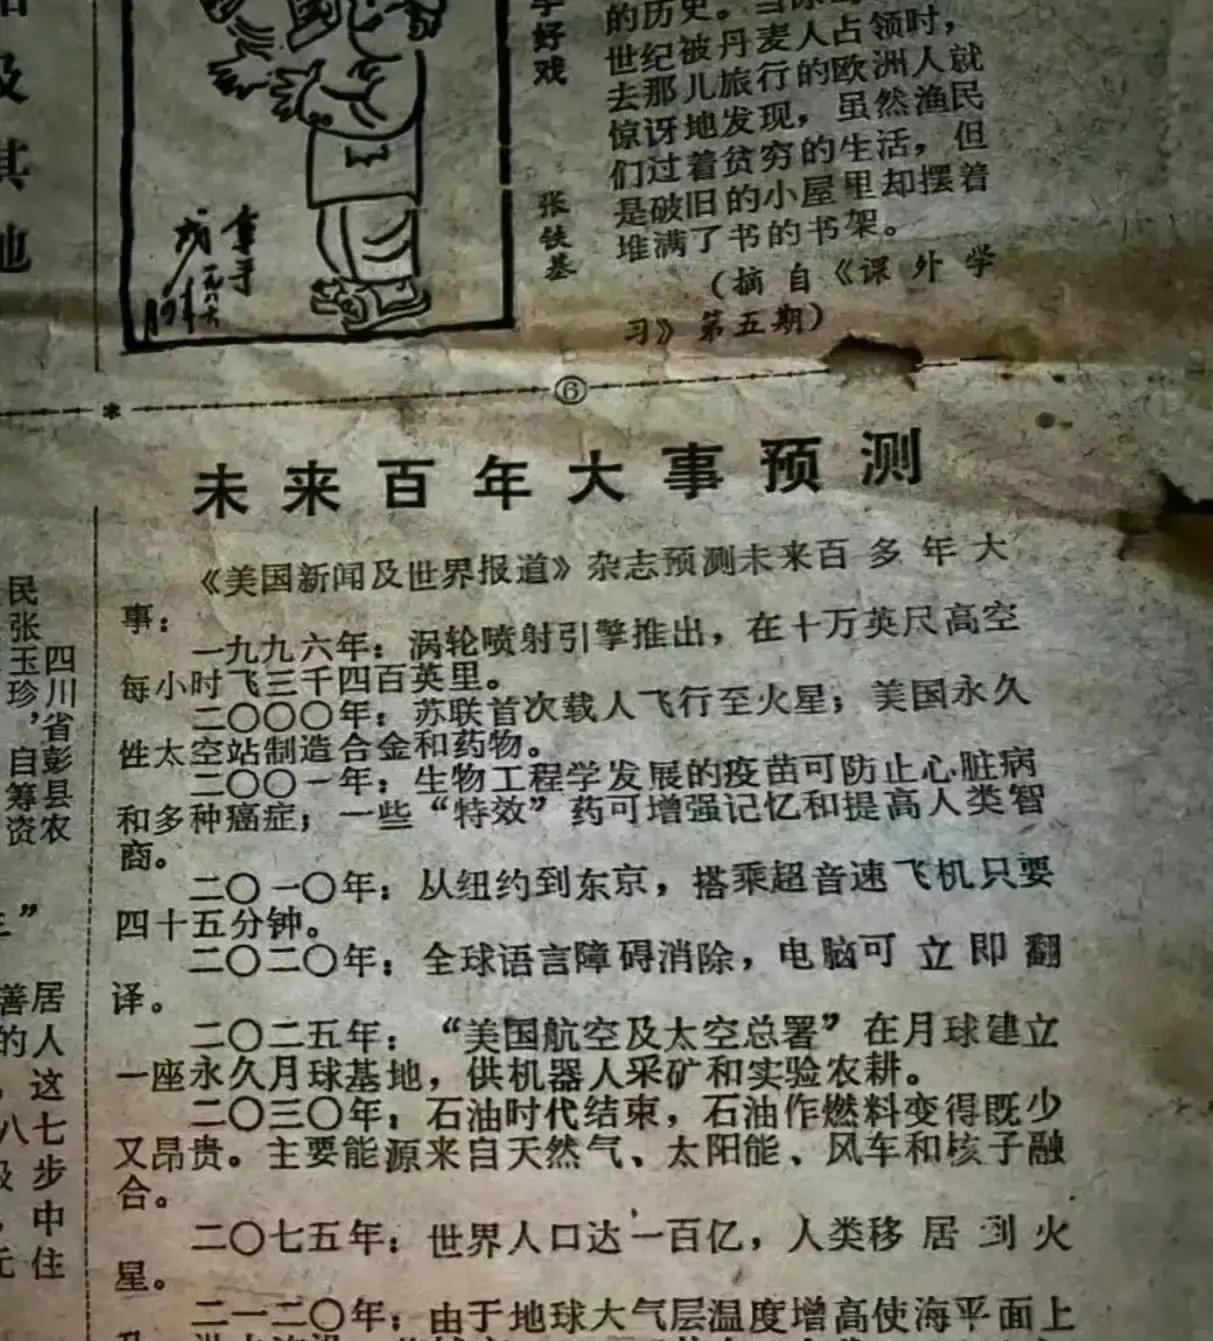 及
其
地
好
戏
张
铁
基
的历史。
世纪被丹麦人占领时，
去那儿旅行的欧洲人就
惊讶地发现，虽然渔民
们过着贫穷的生活，但
是破旧的小屋里却摆着
堆满了书的书架。
（摘自《课外学
习》第五期）
拿手
一九八六
⑥
未来百年大事预测
《美国新闻及世界报道》杂志预测未来百多年大
事：
一九九六年：涡轮喷射引擎推出，在十万英尺高空
每小时飞三千四百英里。
二〇〇〇年：苏联首次载人飞行至火星；美国永久
性太空站制造合金和药物。
二〇〇一年：生物工程学发展的疫苗可防止心脏病
和多种癌症；一些“特效”药可增强记忆和提高人类智
商。
二〇一〇年：从纽约到东京，搭乘超音速飞机只要
四十五分钟。
二〇二〇年：全球语言障碍消除，电脑可立即翻
译。
二〇二五年：“美国航空及太空总署”在月球建立
一座永久月球基地，供机器人采矿和实验农耕。
二〇三〇年：石油时代结束，石油作燃料变得既少
又昂贵。主要能源来自天然气、太阳能、风车和核子融
合。
二〇七五年：世界人口达一百亿，人类移居到火
星。
二一二〇年：由于地球大气层温度增高使海平面上
四川省彭县农
民张玉珍，自筹资
”
善居
的人
，这
八七
级步
，中
元住